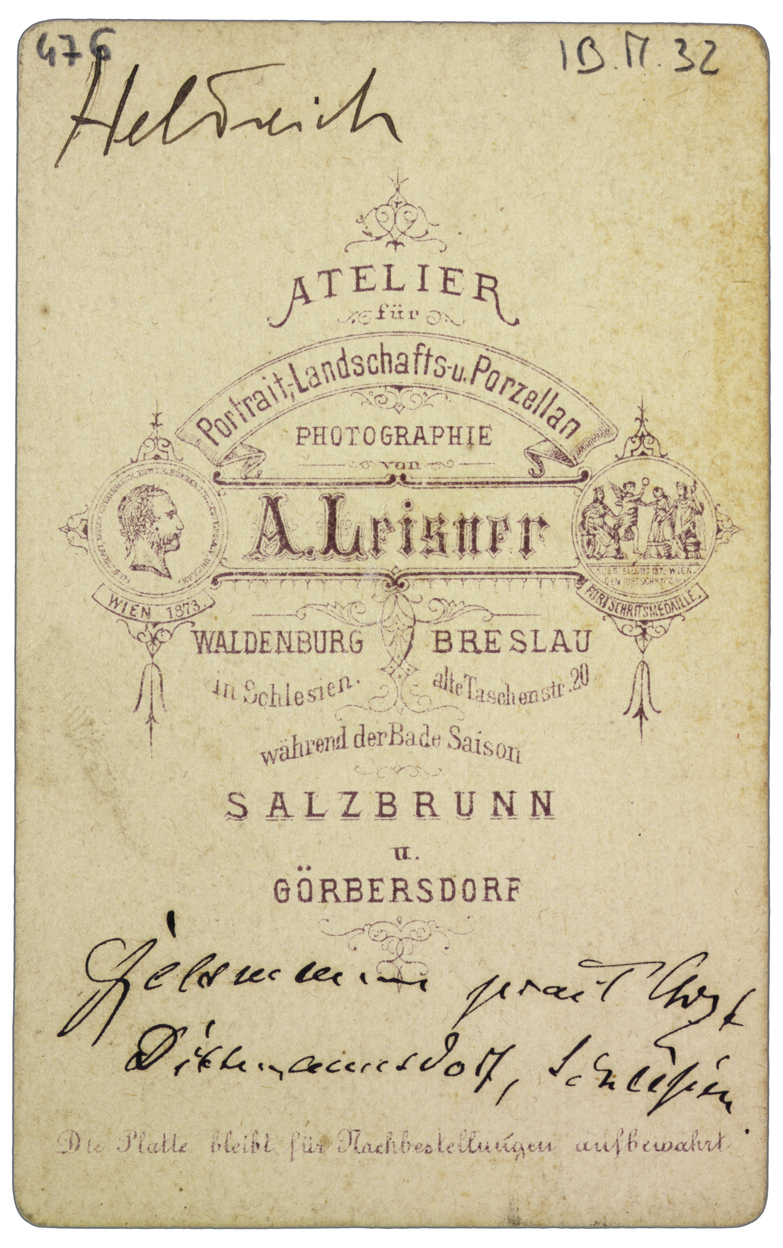 476
IB.M.32
Heldreich
ATELIER
für
Portrait-, Landschafts- u. Porzellan
PHOTOGRAPHIE
von
A. Leisner
WIEN 1873.
FORTSCHRITSMEDAILLE.
WALDENBURG
in Schlesien.
BRESLAU
alte Taschenstr. 20
während der Bade Saison
SALZBRUNN
u.
GÖRBERSDORF
prait Arzt
Dittmannsdorf, Schlesien.
Die Platte bleibt für Nachbestellungen aufbewahrt.